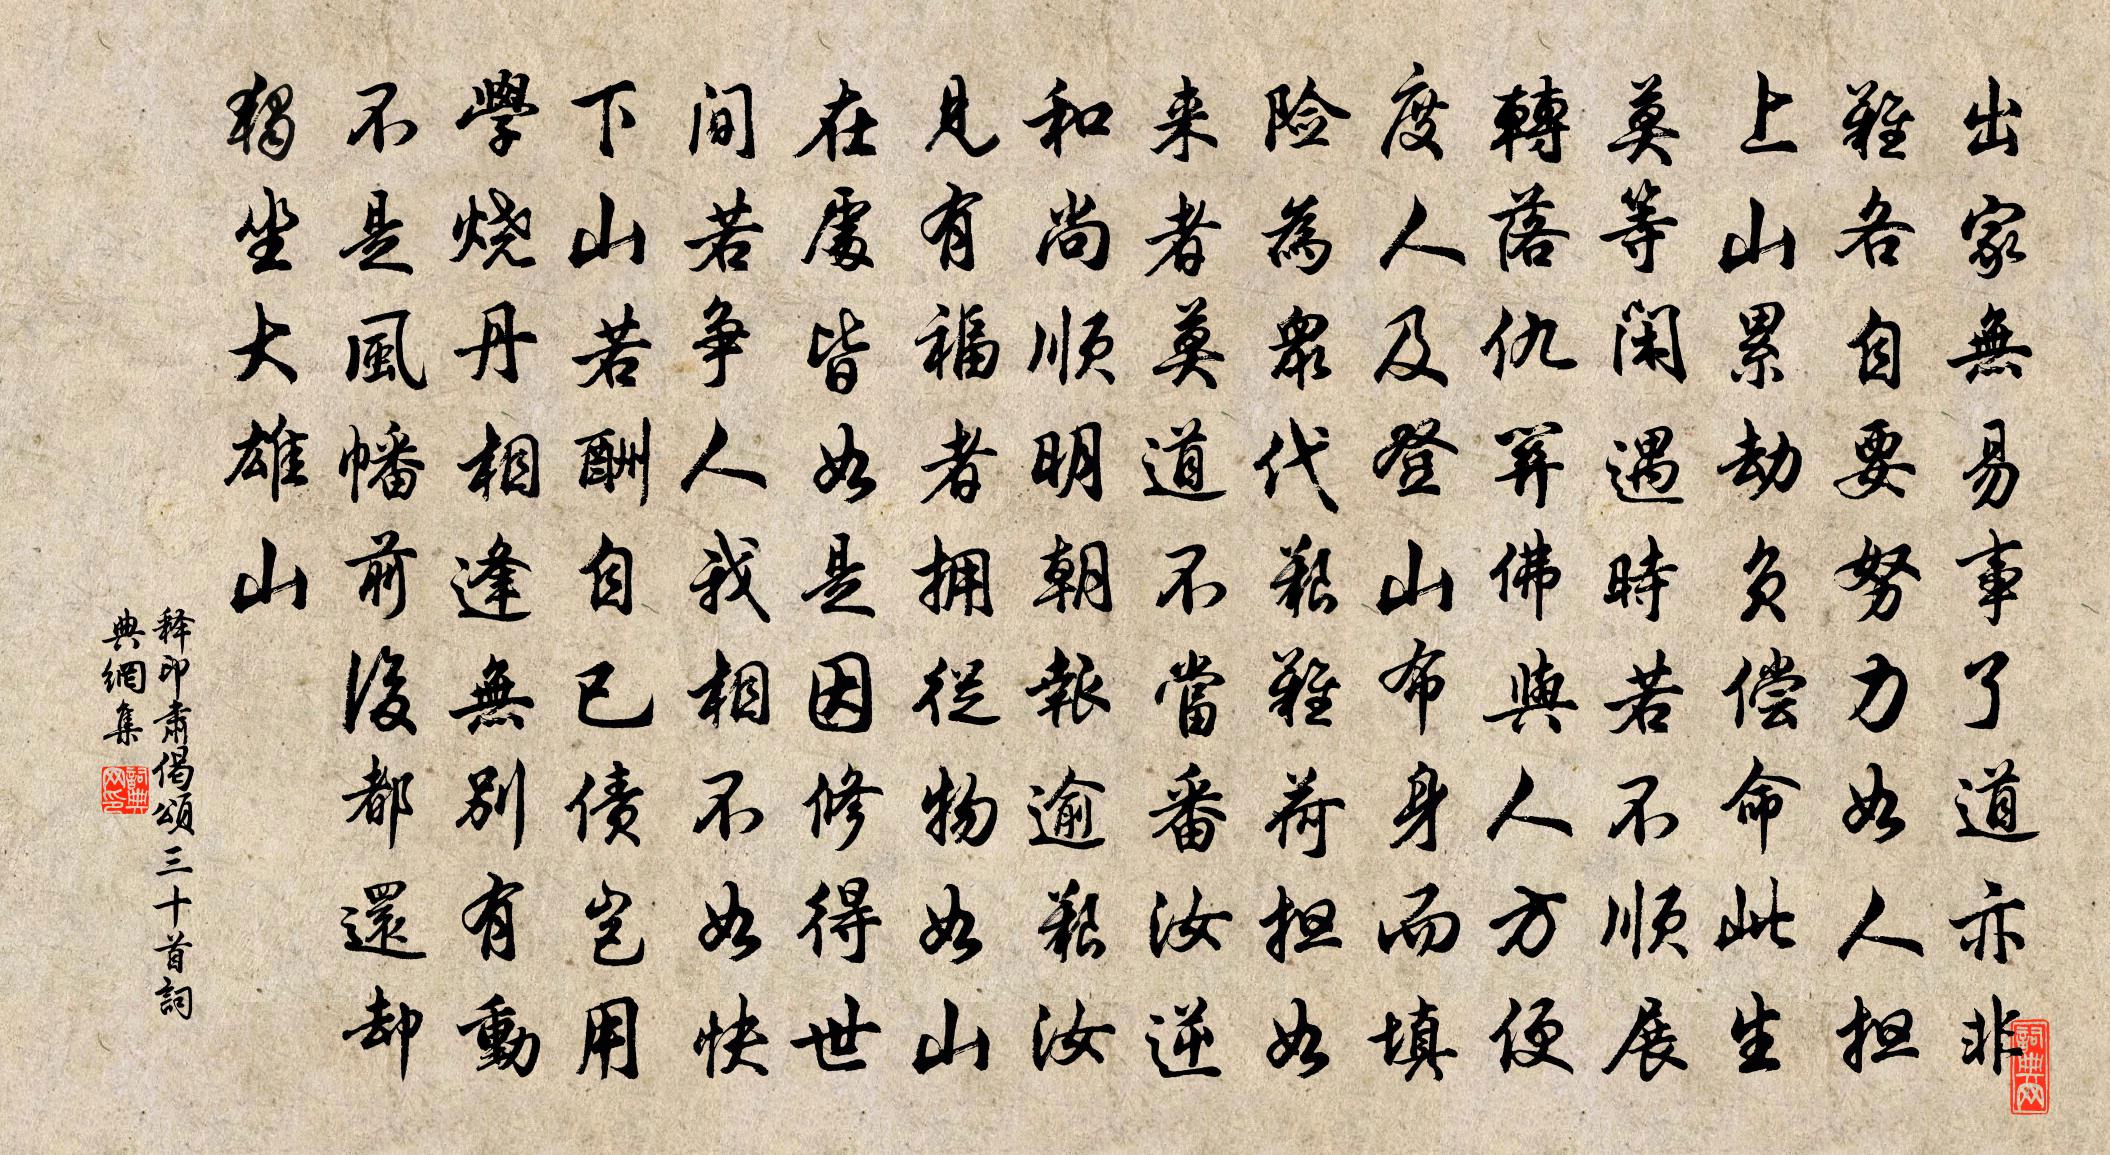 出家無易事了道亦非
難各自要努力如人担
上山累劫負偿命此生
莫等闲遇時若不順展
轉落仇笄佛與人方便
度人及登山布身而填
险為衆代艱難荷担如
来者莫道不當番汝逆
和尚顺明朝報逾艱汝
見有福者拥從物如山
在處皆如是因修得世
间若争人我相不如快
下山若酬自已债岂用
學烧丹相逢無別有動
不是風幡前後都還却
獨坐大雄山
释印肃偈頌三十首詞
典網集
詞典网
詞典网印